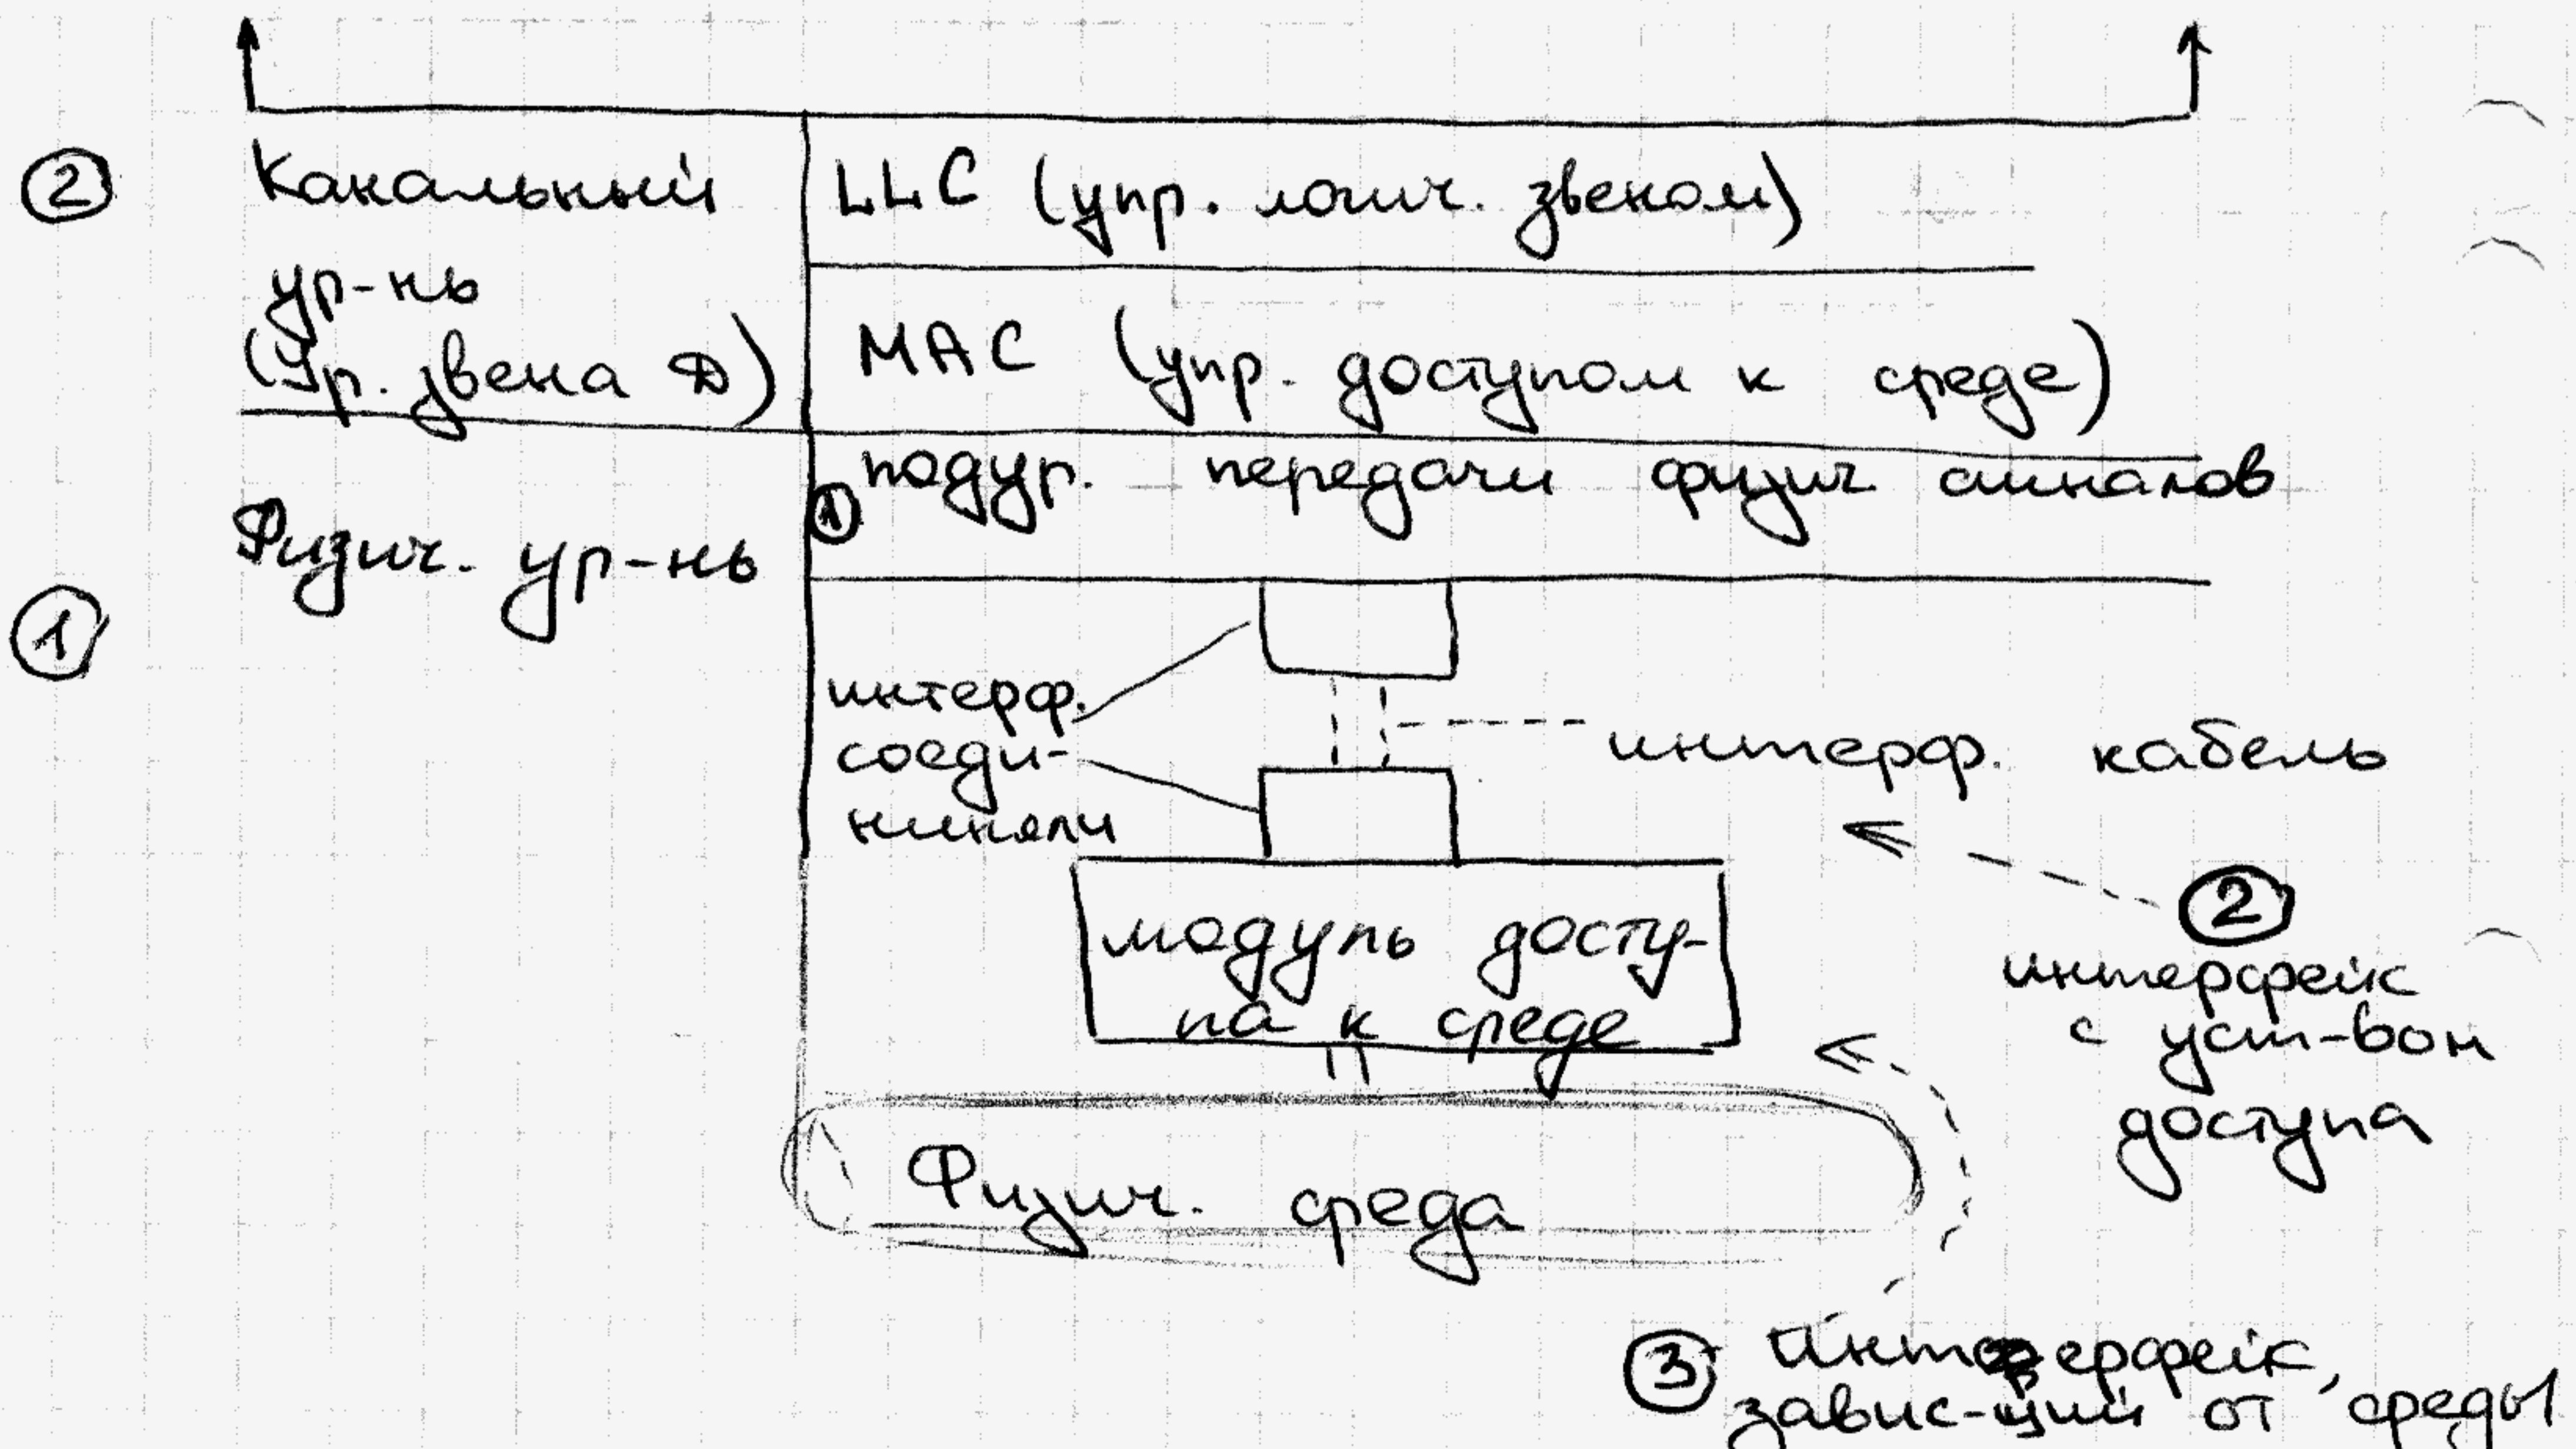 ② Канальный
ур-нь
(Ур. звена Д)
LLC (упр. логич. звеном)
MAC (упр. доступом к среде)
① Физич. ур-нь
① подур. передачи физич сигналов
интерф.
соеди-
нинели
интерф. кабель
модуль досту-
па к среде
②
интерфейс
с уст-вом
доступа
Физич. среда
③ Интерфейс,
завис-щий от среды